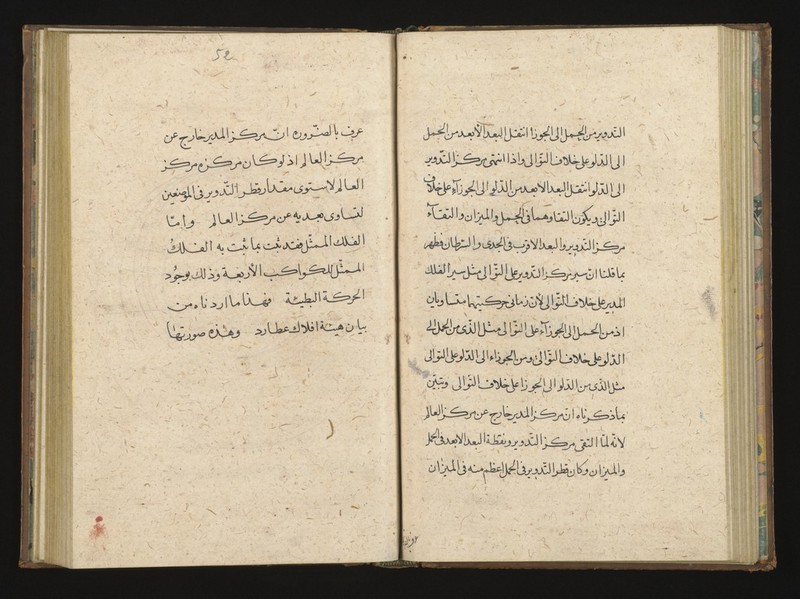 التدوير من الحمل الى الجوزا انتقل البعد الابعد من الحمل
الى الدلو على خلاف التوالى واذا انتهى مركز التدوير
الى الدلو انتقل البعد الابعد من الدلو الى الجوزآء على خلاف
التوالى ويكون التقاوهما فى الحمل والميزان والتقآء
مركز التدوير والبعد الاقرب فى الجدى والسرطان فظهر
بما قلنا ان سير مركز التدوير على التوالى مثل سير الفلك
المدير على خلاف التوالى لان زمانى حركتيهما متساويان
اذ من الحمل الى الجوزآء على التوالى مثل الذى من الحمل الى
الدلو على خلاف التوالى ومن الجوزاء الى الدلو على التوالى
مثل الذى من الدلو الى الجوزا على خلاف التوالى وتبين
بما ذكرناه ان مركز المدير خارج عن مركز العالم
لانه لما التقى مركز التدوير ونقطة البعد الابعد فى الحمل
والميزان وكان قطر التدوير فى الحمل اعظم منه فى الميزان
52
عرف بالضروره ان مركز المدير خارج عن
مركز العالم اذ لو كان مركزه مركز
العالم لاستوى مقدار قطر التدوير فى الموضعين
لتساوى بعديه عن مركز العالم واما
الفلك الممثل فقد ثبت بما ثبت به الفلك
الممثل للكواكب الأربعة وذلك بوجود
الحركة البطيئة فهذا ما اردناه من
بيان هيئة افلاك عطارد وهذه صورتها